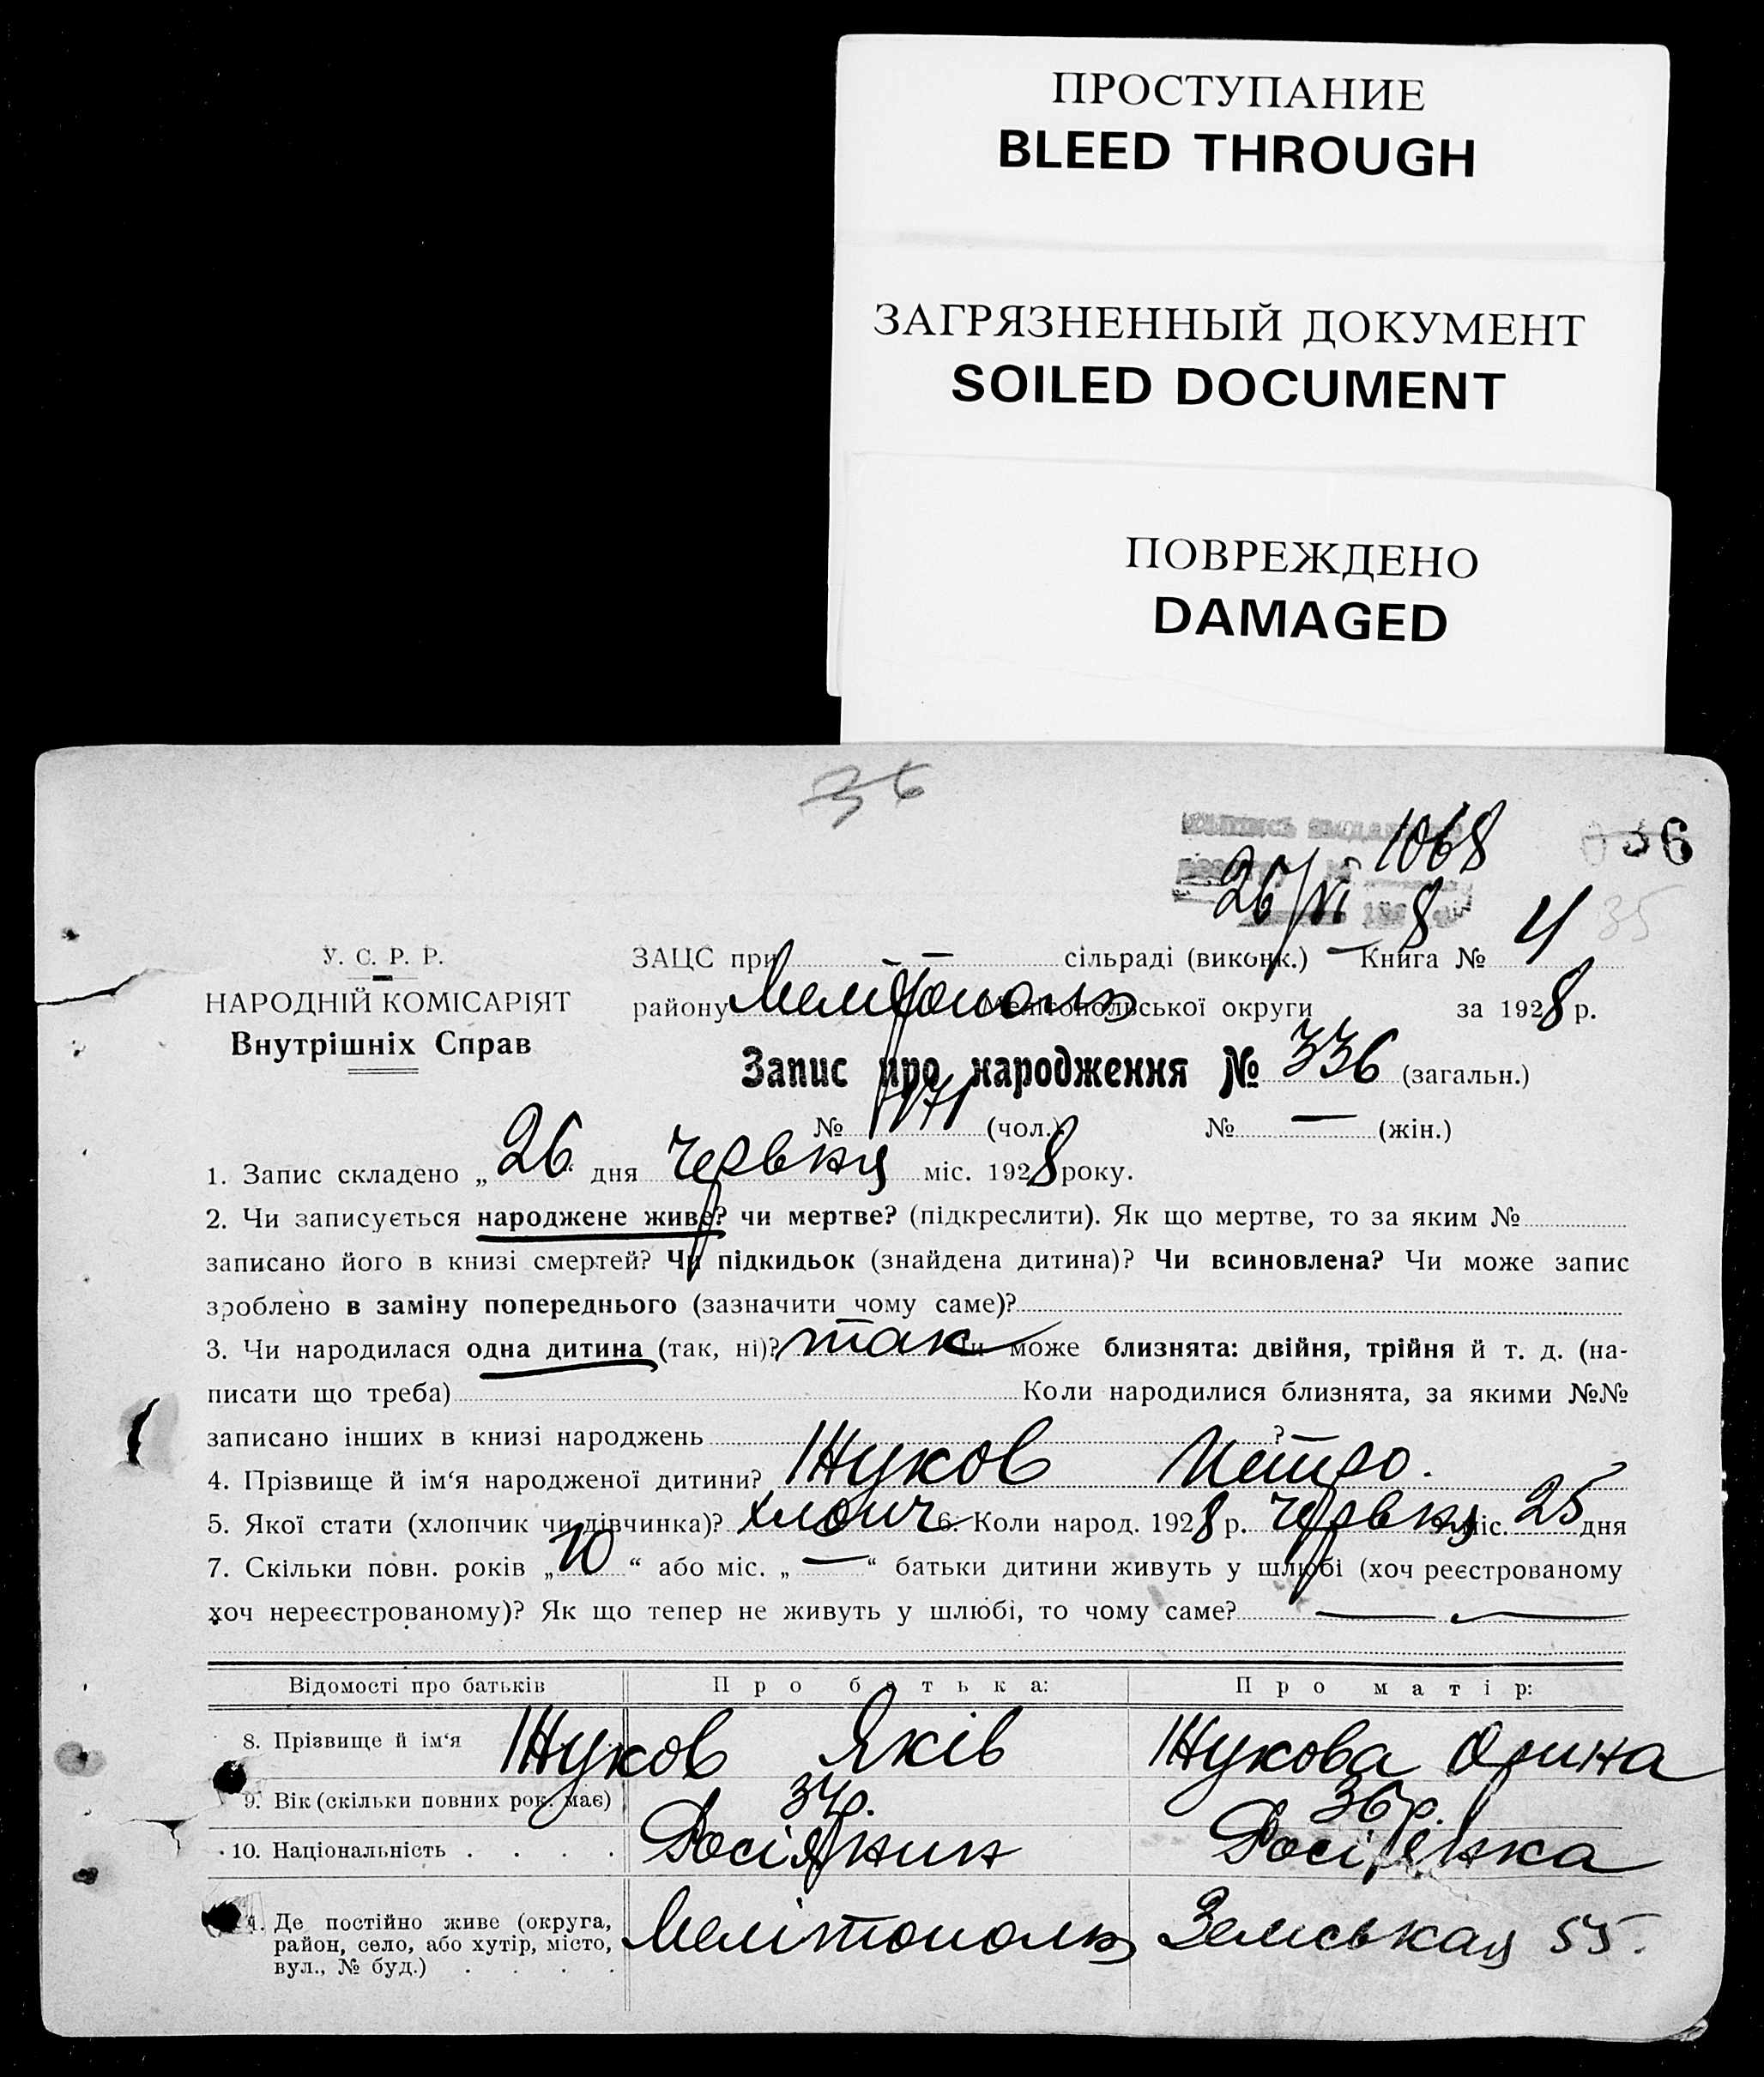 ПРОСТУПАНИЕ
BLEED THROUGH
ЗАГРЯЗНЕННЫЙ ДОКУМЕНТ
SOILED DOCUMENT
ПОВРЕЖДЕНО
DAMAGED
36
1068
36
26/VI 8
35
У. С. Р. Р.
НАРОДНІЙ КОМІСАРІЯТ
Внутрішніх Справ
ЗАЦС при — сільраді (виконк.) — Книга № 4
району Мелітополь Мелітопольської округи за 1928 р.
Запис про народження № 336 (загальн.)
№ 171 (чол.) № — (жін.)
1. Запис складено „26“ дня червня міс. 1928 року.
2. Чи записується народжене живе? чи мертве? (підкреслити). Як що мертве, то за яким №
записано його в книзі смертей? Чи підкидьок (знайдена дитина)? Чи всиновлена? Чи може запис
зроблено в заміну попереднього (зазначити чому саме)?
3. Чи народилася одна дитина (так, ні)? так Чи може близнята: двійня, трійня й т. д. (на-
писати що треба) Коли народилися близнята, за якими №№
записано інших в книзі народжень ?
4. Прізвище й ім‘я народженої дитини? Жуков Петро.
5. Якої стати (хлопчик чи дівчинка)? хлопч 6. Коли народ. 1928 р. червня міс. 25 дня
7. Скільки повн. років „10“ або міс. „—“ батьки дитини живуть у шлюбі (хоч реєстрованому
хоч нереєстрованому)? Як що тепер не живуть у шлюбі, то чому саме? — —
Відомості про батьків Про батька: Про матір:
8. Прізвище й ім‘я Жуков Яків Жукова Орина
9. Вік (скільки повних рок. має) 37р. 36р.
10. Національність . . . . Росіянин Росіянка
11. Де постійно живе (округа, Мелітополь Земськая 55.
район, село, або хутір, місто,
вул., № буд.) . . . .